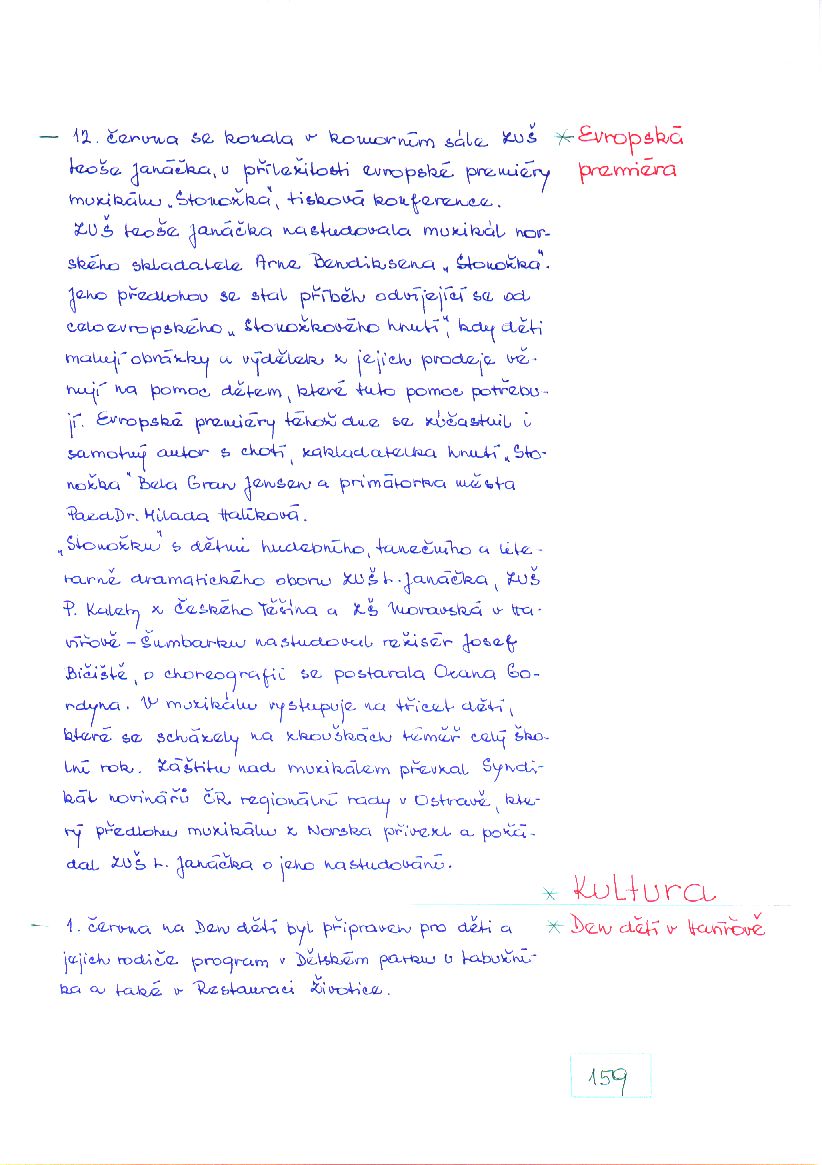 — 12. června se konala v komorním sále ZUŠ
* Evropská
premiéra
Leoše Janáčka, u příležitosti evropské premiéry
muzikálu „Stonožka", tisková konference.
ZUŠ Leoše Janáčka nastudovala muzikál nor-
ského skladatele Arne Bendiksena „Stonožka".
Jeho předlohou se stal příběh odvíjející se od
celoevropského „Stonožkového hnutí", kdy děti
malují obrázky a výdělek z jejich prodeje vě-
nují na pomoc dětem, které tuto pomoc potřebu-
jí. Evropské premiéry téhož dne se zúčastnil i
samotný autor s chotí, zakladatelka hnutí „Sto-
nožka" Bela Gran Jensen a primátorka města
PaedDr. Milada Halíková.
„Stonožku" s dětmi hudebního, tanečního a lite-
rárně dramatického oboru ZUŠ L. Janáčka, ZUŠ
P. Kalety z Českého Těšína a ZŠ Moravská v Ha-
vířově – Šumbarku nastudoval režisér Josef
Bičiště, o choreografii se postarala Oxana Go-
rdyna. V muzikálu vystupuje na třicet dětí,
které se scházely na zkouškách téměř celý ško-
lní rok. Záštitu nad muzikálem převzal Syndi-
kát novinářů ČR regionální rady v Ostravě, kte-
rý předlohu muzikálu z Norska přivezl a požá-
dal ZUŠ L. Janáčka o jeho nastudování.
* Kultura
— 1. června na Den dětí byl připraven pro děti a
* Den dětí v Havířově
jejich rodiče program v Dětském parku u Labužní-
ka a také v Restauraci Životice.
159